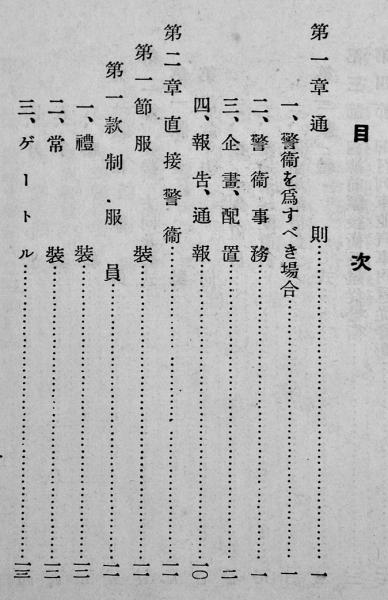 目次
第一章 通則……一
一、警衞を爲すべき場合……一
二、警衞事務……一
三、企畫、配置……二
四、報告、通報……一〇
第二章 直接警衞……一一
第一節 服裝……一一
第一款 制服員……一一
一、禮裝……一二
二、常裝……一二
三、ゲートル……一三